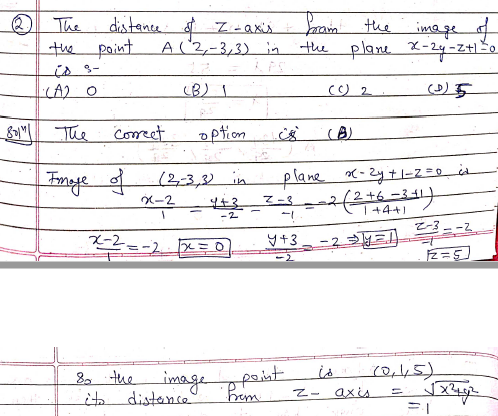 ② The distance of z-axis from the image of
the point A (2,-3,3) in the plane x-2y-z+1=0
is :-
(A) 0 (B) 1 (C) 2 (D) 5
Solⁿ] The correct option is (B)
Image of (2,-3,3) in plane x-2y+1-z=0 is
x-2/1 = y+3/-2 = z-3/-1 = -2(2+6-3+1/1+4+1)
x-2/1 = -2 x=0 y+3/-2 = -2 ⇒ y=1 z-3/-1 = -2
z=5
So the image point is (0,1,5)
its distance from z-axis = √x²+y²
= 1